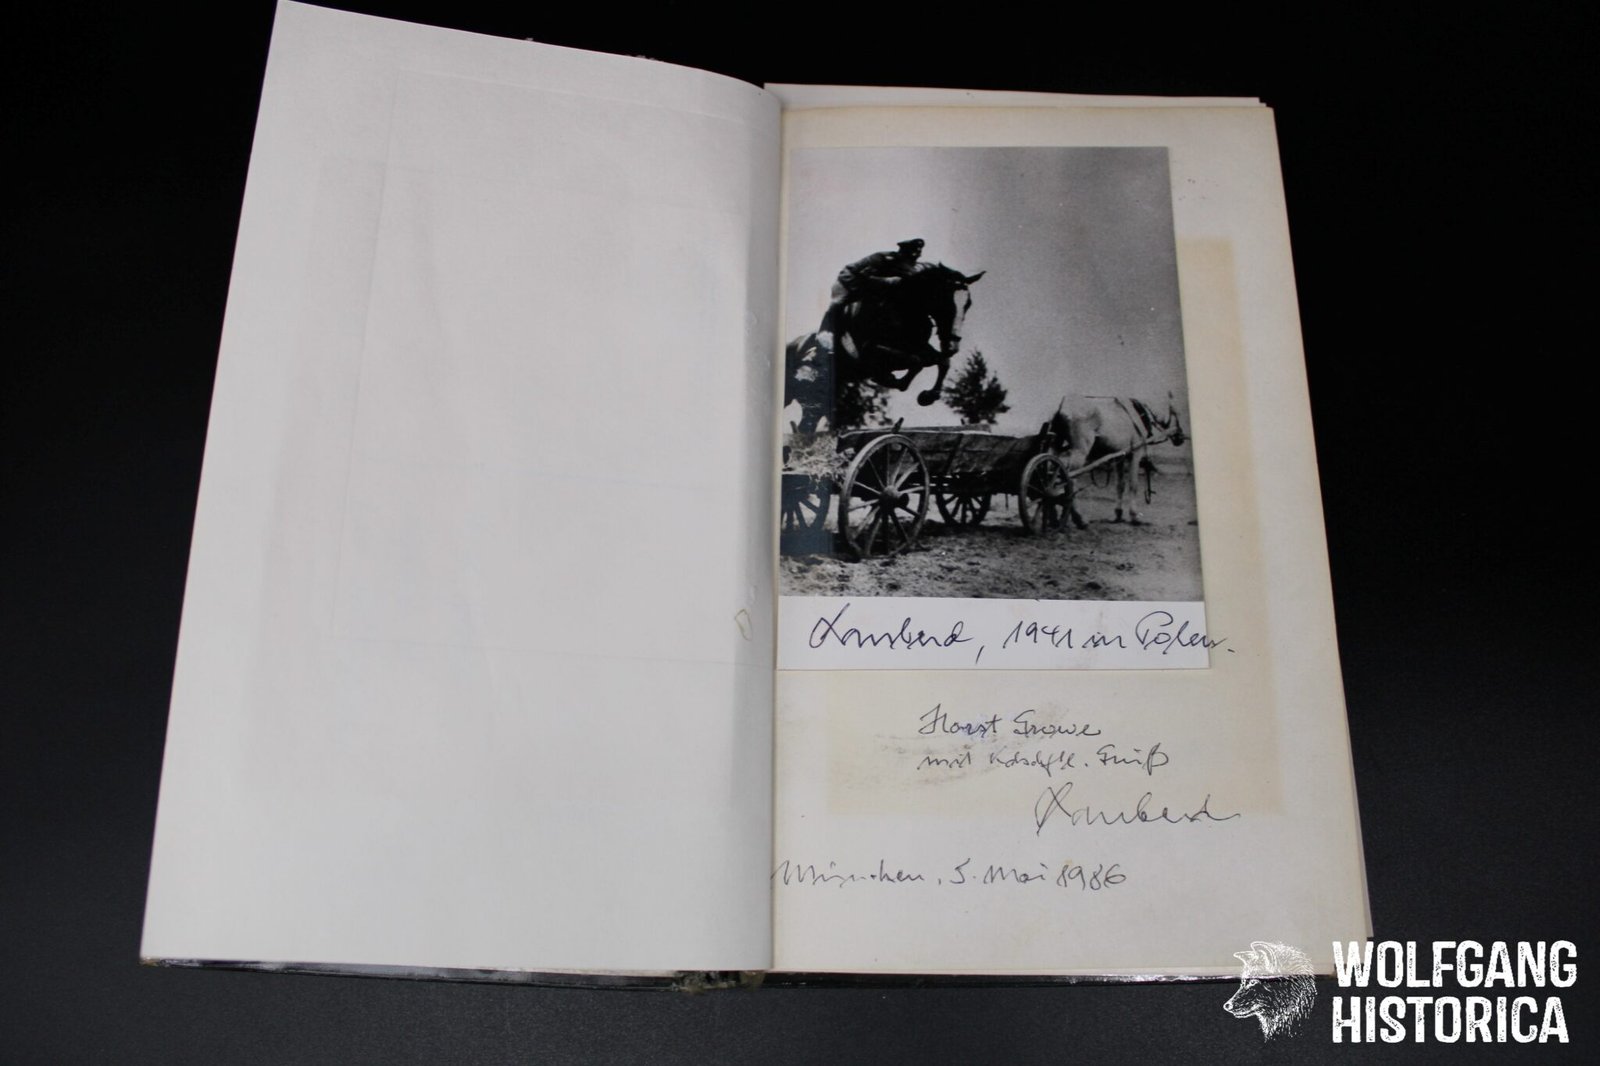 Lombard, 1941 in Polen.
Horst Growe
mit Gruß
Lombard
München, 5. Mai 1986
WOLFGANG
HISTORICA